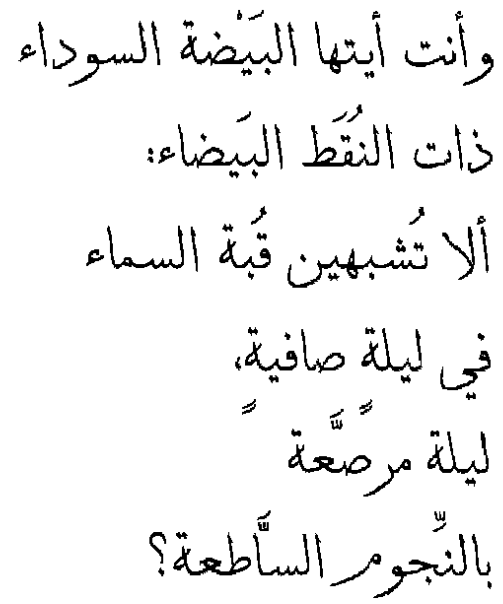 وأنت أيتها البَيْضة السوداء
ذات النُقَط البَيضاء:
ألا تُشبهين قُبة السماء
في ليلة صافية،
ليلةً مرصَّعةً
بالنِّجوم السَّاطعة؟